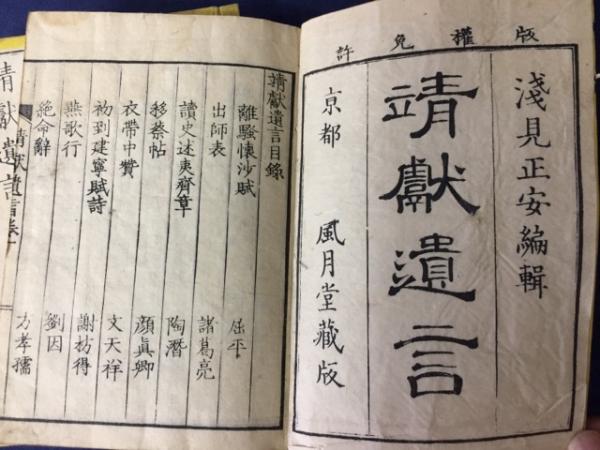 版權免許
淺見正安編輯
靖獻遺言
京都 風月堂藏版
靖獻遺言目錄
離騷懷沙賦 屈平
出師表 諸葛亮
讀史述夷齊章 陶潛
移蔡帖 顏眞卿
衣帶中贊 文天祥
初到建寧賦詩 謝枋得
燕歌行 劉因
絶命辭 方孝孺
靖獻遺言卷一
靖獻遺言